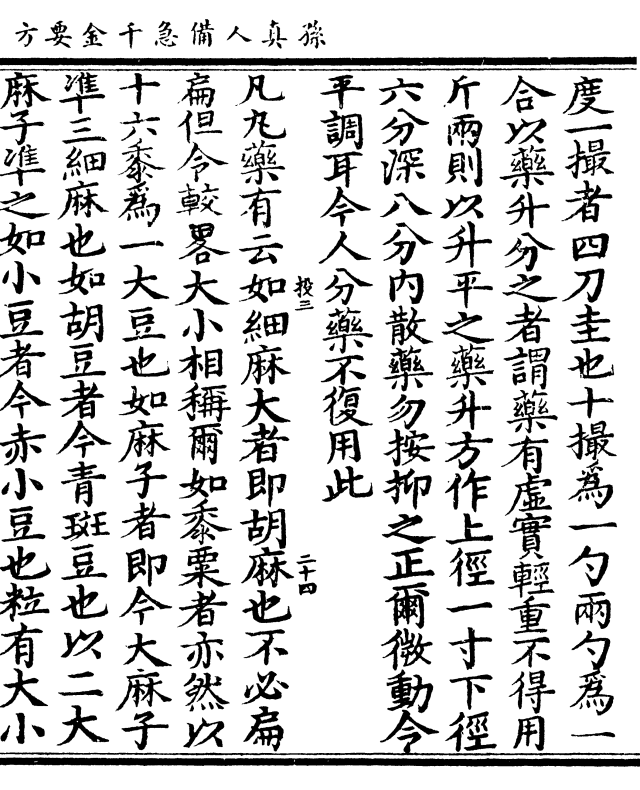 孫真人備急千金要方
度一撮者四刀圭也十撮爲一勺兩勺爲一
合以藥升分之者謂藥有虛實輕重不得用
斤兩則以升平之藥升方作上徑一寸下徑
六分深八分內散藥勿按抑之正爾微動令
平調耳今人分藥不復用此
投三
二十四
凡丸藥有云如細麻大者即胡麻也不必扁
扁但令較畧大小相稱爾如黍粟者亦然以
十六黍爲一大豆也如麻子者即今大麻子
準三細麻也如胡豆者今青斑豆也以二大
麻子準之如小豆者今赤小豆也粒有大小